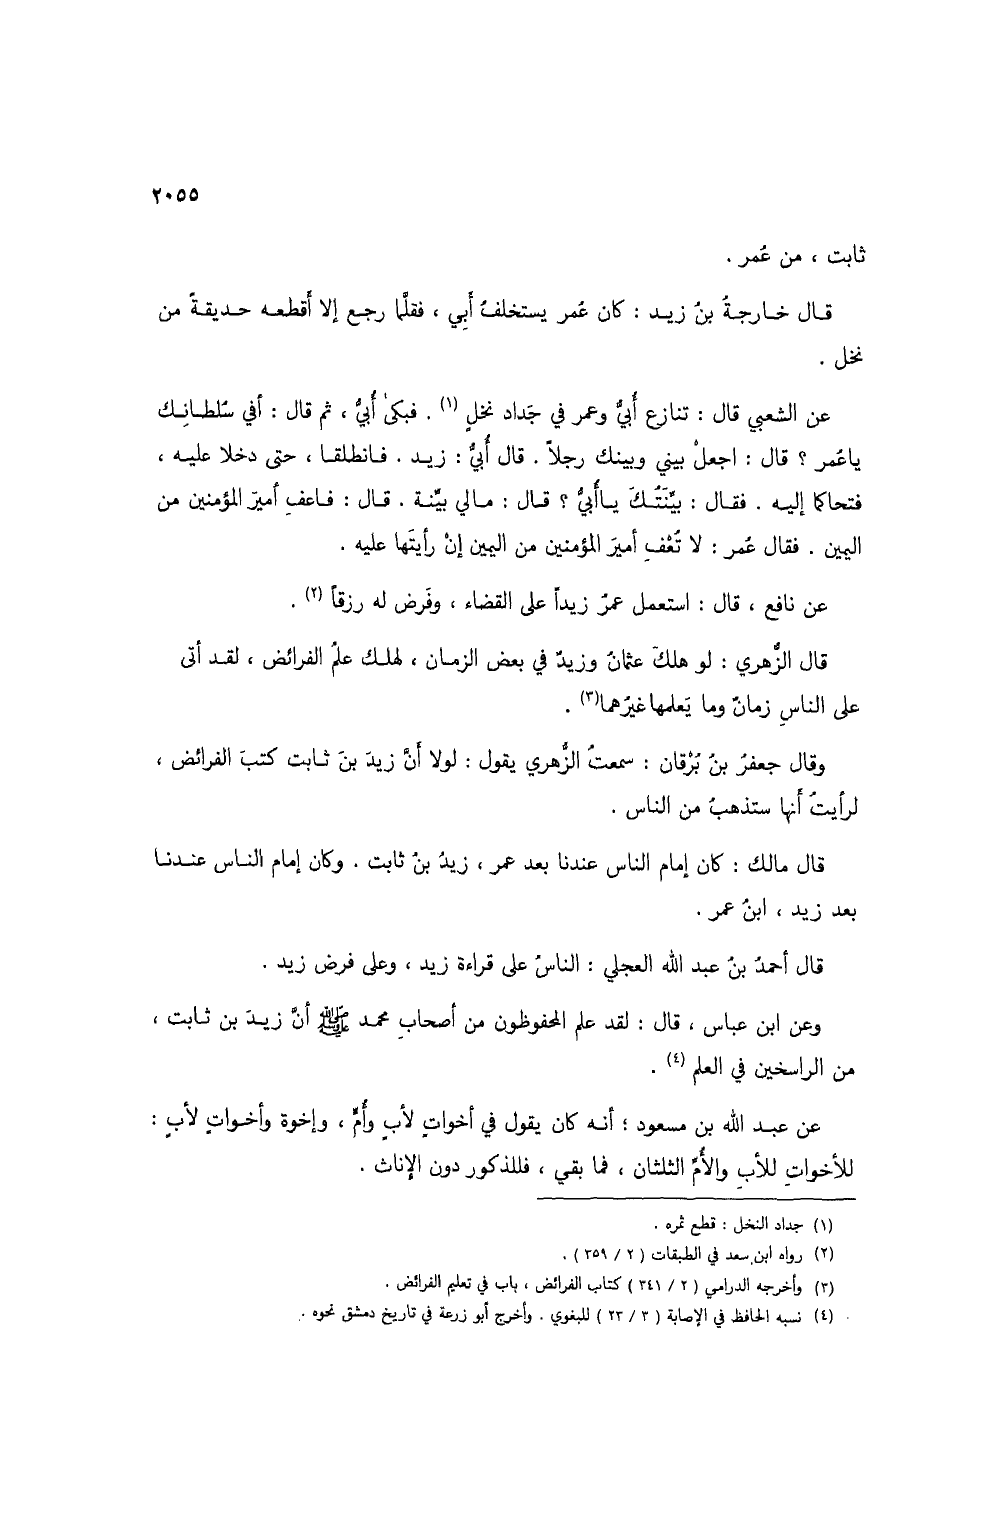 ٢٠٥٥
ثابت ، من عُمر .
قـال خـارجـةُ بنُ زيـد : كان عُمر يستخلفُ أَبِي ، فقلَّما رجـع إلا أَقطعـه حـديقـةً من
نخل .
عن الشعبي قال : تنازع أُبيٌّ وعمر في جَداد نخلٍ (١) . فبكىٰ أُبيٌّ ، ثم قال : أفي سُلطـانِـك
ياعُمر ؟ قال : اجعلْ بيني وبينك رجلاً . قال أُبيٌّ : زيـد . فـانطلقـا ، حتى دخلا عليـه ،
فتحاكما إليـه . فقـال : بيِّنَتُـكَ يـاأُبيُّ ؟ قـال : مـالي بيِّنـة . قـال : فـاعفِ أميرَ المؤمنين من
اليمين . فقال عُمر : لا تُعْفِ أميرَ المؤمنين من اليمين إنْ رأيتَها عليه .
عن نافع ، قال : استعمل عمرُ زيداً على القضاء ، وفَرض له رزقاً (٢) .
قال الزُّهري : لو هلكَ عثمانُ وزيدٌ في بعض الزمـان ، لهلـك علمُ الفرائض ، لقـد أتى
على الناسِ زمانٌ وما يَعلمها غيرُهما(٣) .
وقال جعفرُ بنُ بُرْقان : سمعتُ الزُّهري يقول : لولا أَنَّ زيدَ بنَ ثـابت كتبَ الفرائض ،
لرأيتُ أَنها ستذهبُ من الناس .
قال مالك : كان إمام الناس عندنا بعد عمر ، زيدُ بنُ ثابت . وكان إمام النـاس عنـدنـا
بعد زيد ، ابنُ عمر .
قال أحمدُ بنُ عبد الله العجلي : الناسُ على قراءة زيد ، وعلى فرض زيد .
وعن ابن عباس ، قال : لقد علم المحفوظون من أصحابِ محمد ﷺ أنَّ زيـدَ بن ثـابت ،
من الراسخين في العلم (٤) .
عن عبـد الله بن مسعود ؛ أنـه كان يقول في أخواتٍ لأبٍ وأُمٍّ ، وإخوة وأخـواتٍ لأبٍ :
للأخواتِ للأبِ والأُمِّ الثلثان ، فما بقي ، فللذكور دون الإناث .
(١) جداد النخل : قطع ثمره .
(٢) رواه ابن سعد في الطبقات ( ٢ / ٣٥٩ ) .
(٣) وأخرجه الدرامي ( ٢ / ٣٤١ ) كتاب الفرائض ، باب في تعليم الفرائض .
(٤) نسبه الحافظ في الإصابة ( ٣ / ٢٣ ) للبغوي . وأخرج أبو زرعة في تاريخ دمشق نحوه .